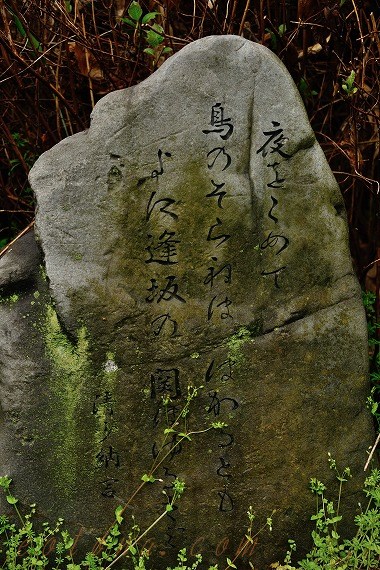 夜をこめて
鳥のそら祢は はかるとも
よに逢坂の 関はゆる
清少納言